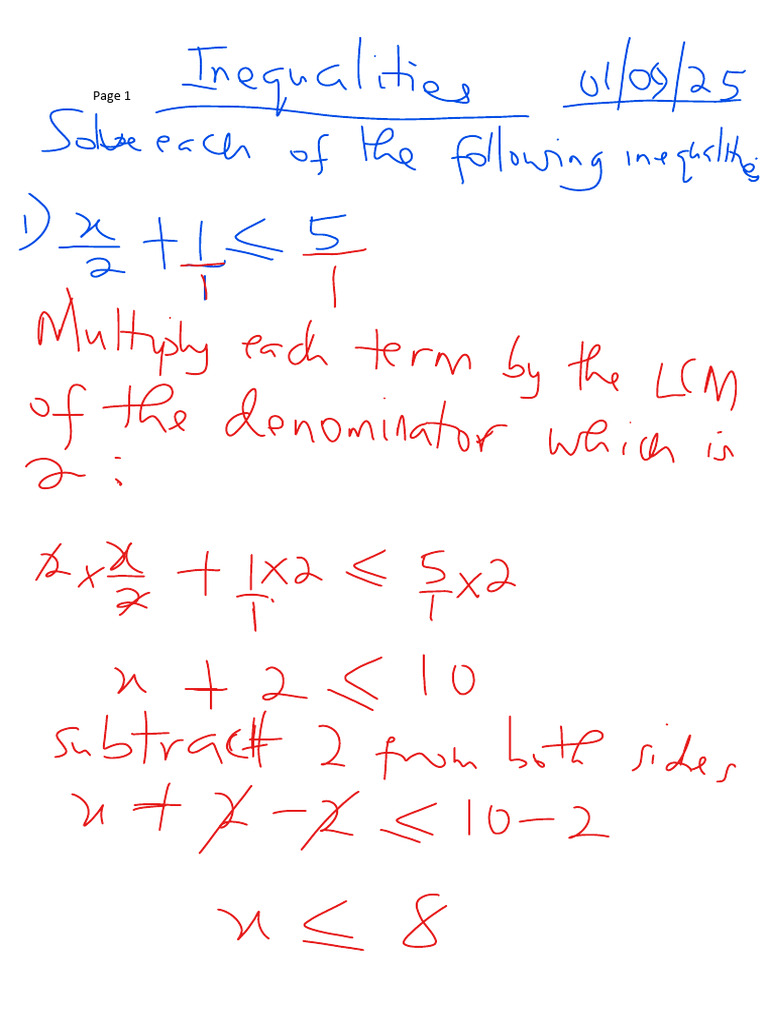 Inequalities 01/09/25
Page 1
Solve each of the following inequalities
1) x/2 + 1/1 ≤ 5/1
Multiply each term by the LCM
of the denominator which is
2:
2 × x/2 + 1/1 × 2 ≤ 5/1 × 2
x + 2 ≤ 10
subtract 2 from both sides
x + 2 - 2 ≤ 10 - 2
x ≤ 8